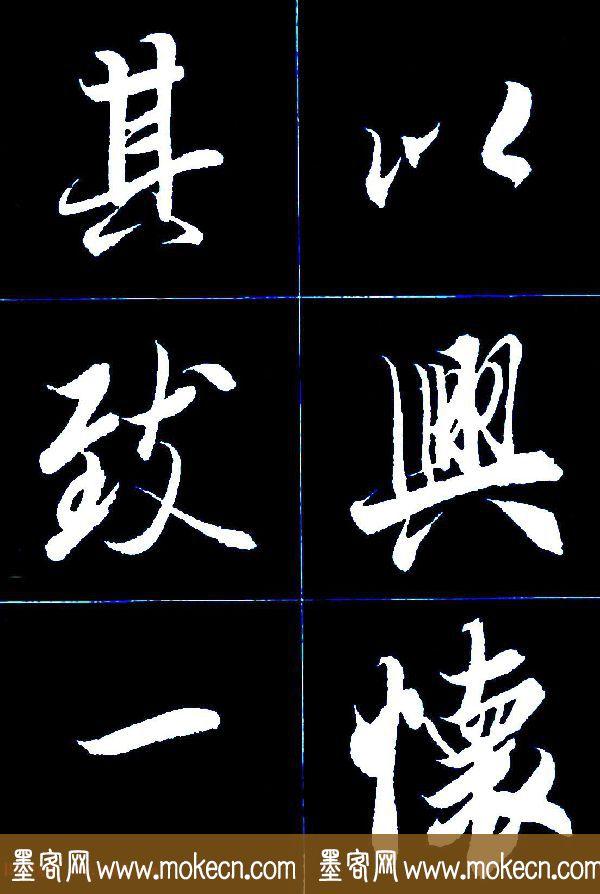 以興懷
其致一
墨客网 www.mokecn.com 墨客网 www.mokecn.com